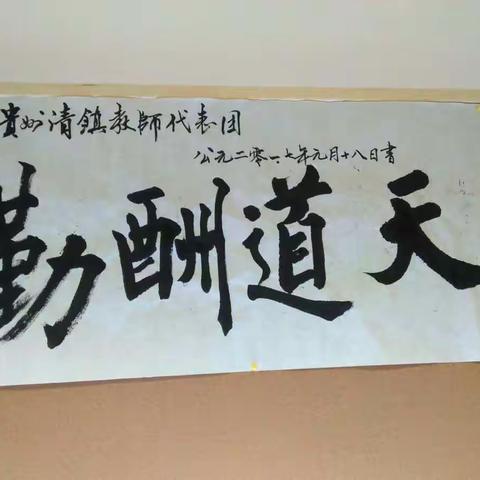 貴州清鎮教師代表团
公元二零一七年元月十八日書
天道酬勤